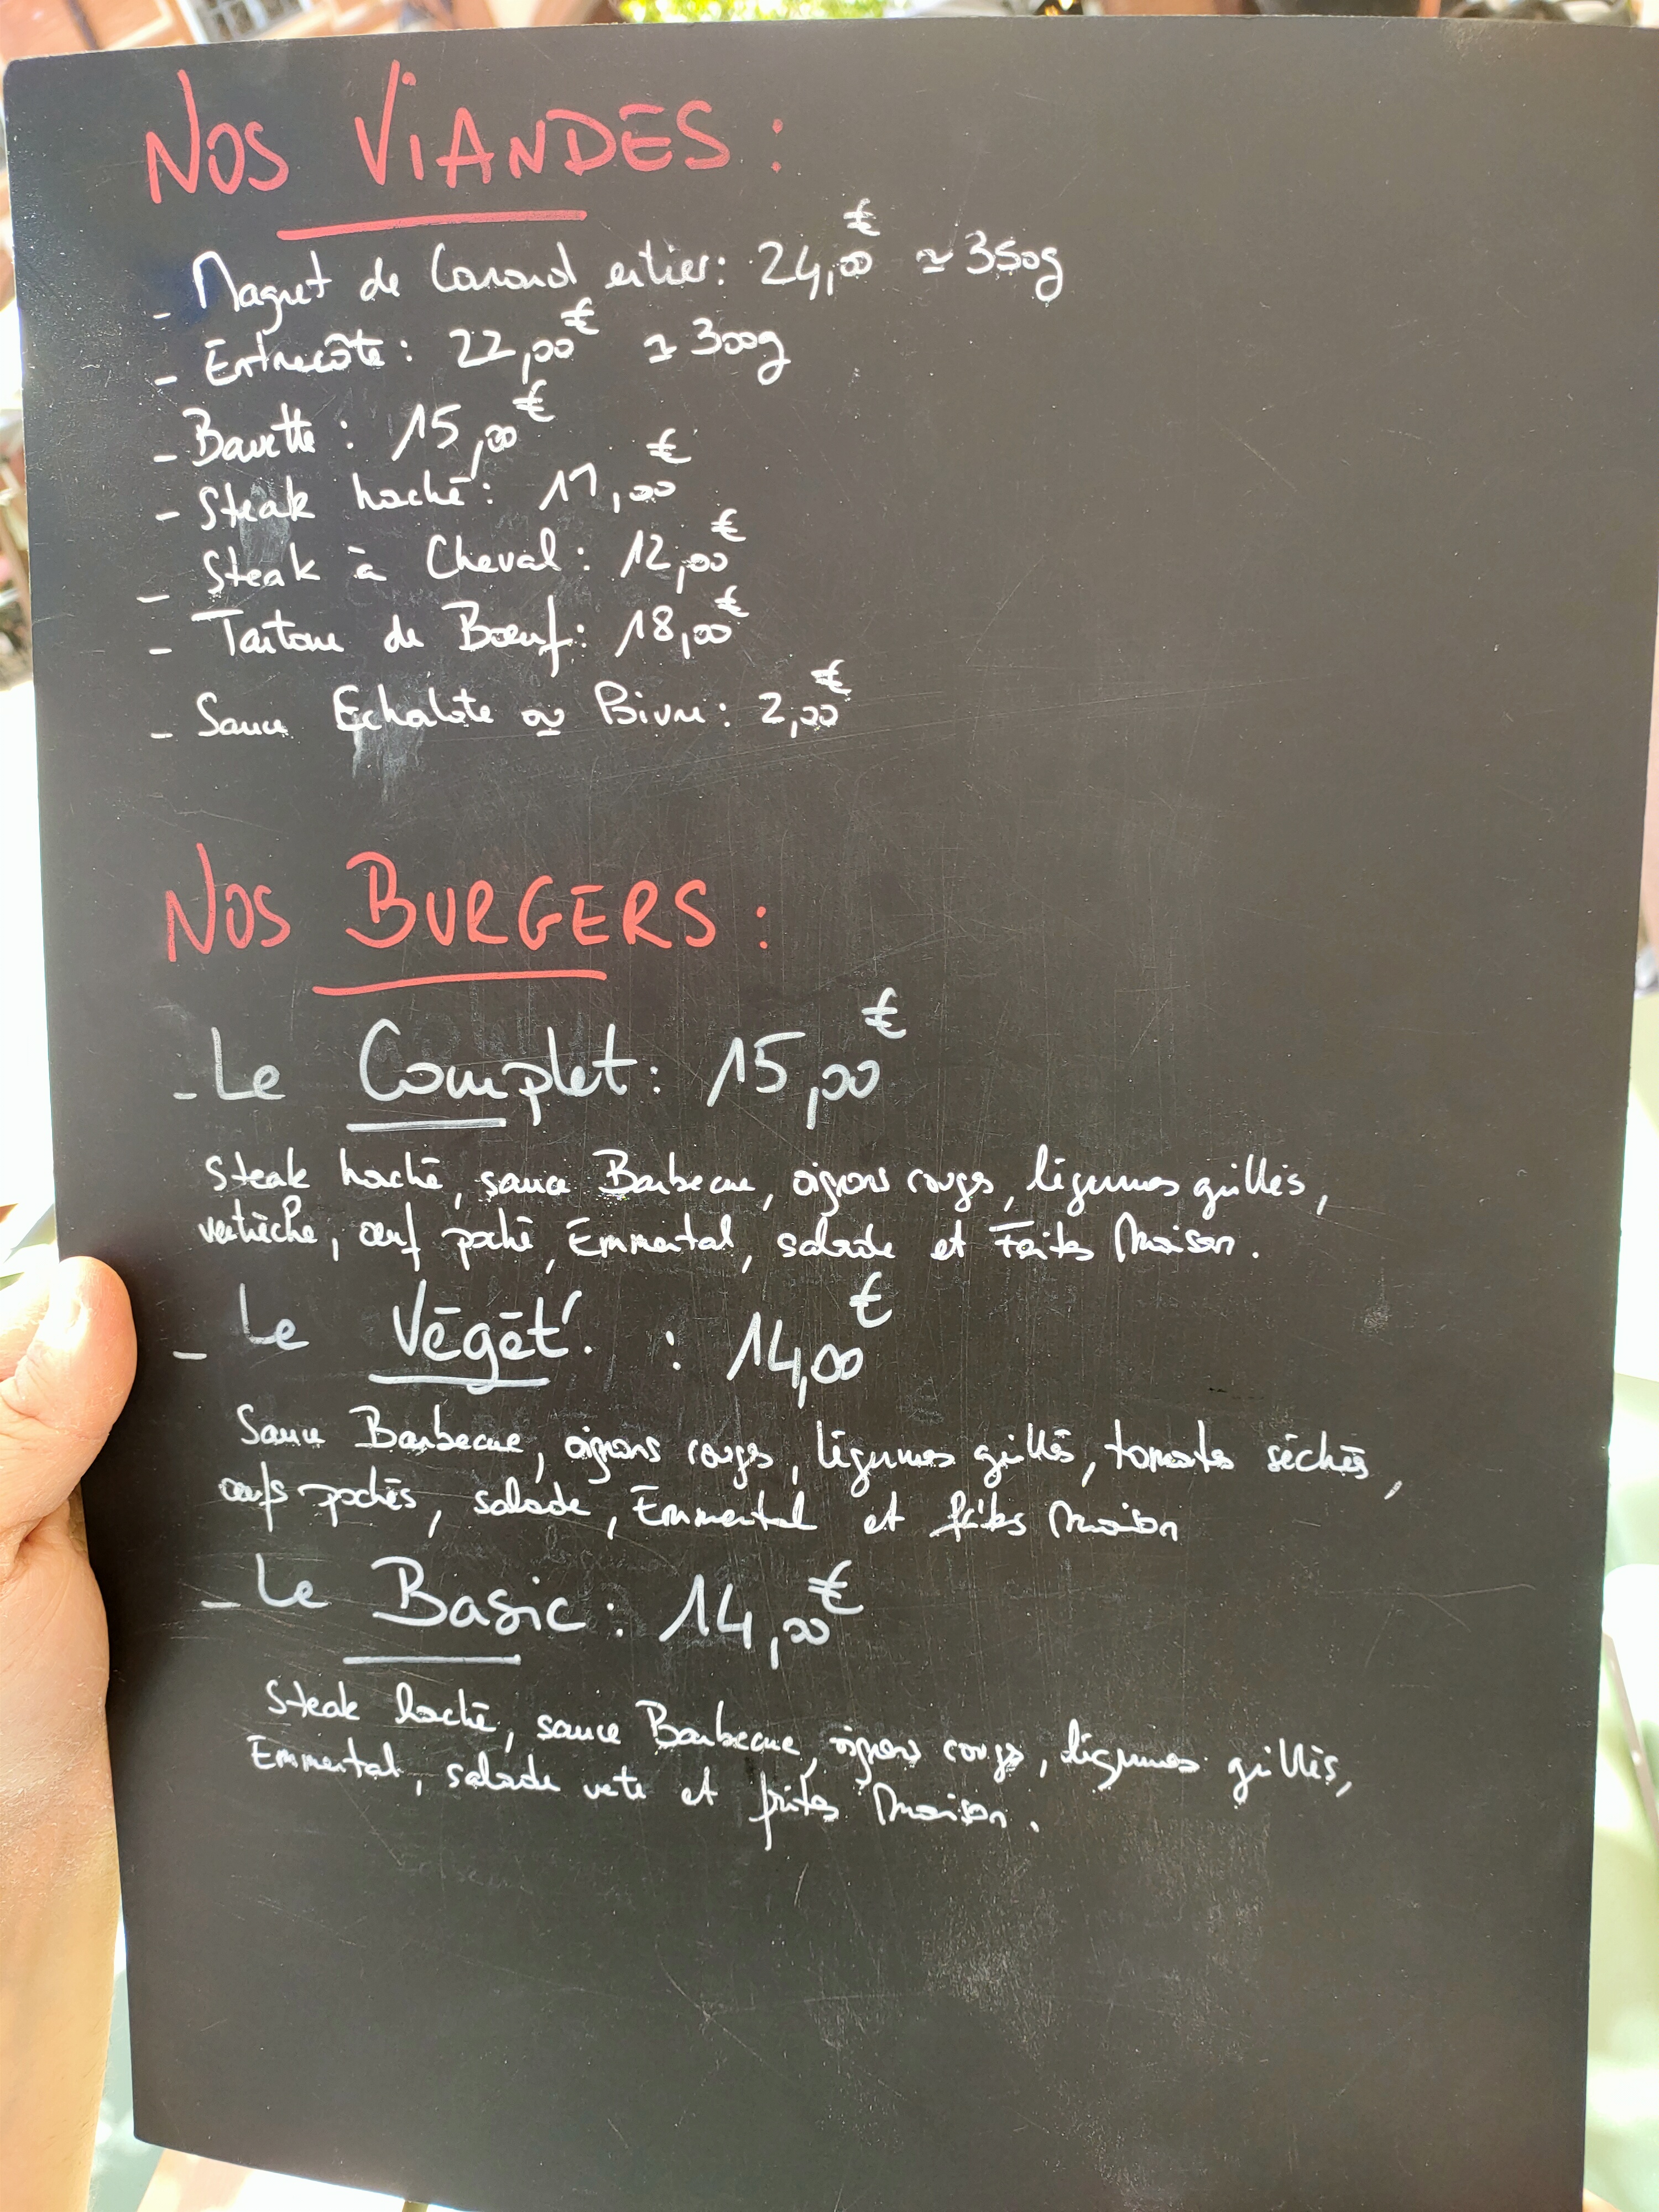 NOS VIANDES :
- Magret de Canard entier : 24,00€ ≃ 350g
- Entrecôte : 22,00€ ≃ 300g
- Bavette : 15,00€
- Steak haché : 11,00€
- Steak à Cheval : 12,00€
- Tartare de Bœuf : 18,00€
- Sauce Echalote ou Poivre : 2,00€
NOS BURGERS :
- Le Complet : 15,00€
Steak haché, sauce Barbecue, oignons rouges, légumes grillés,
ventrèche, œuf poché, Emmental, salade et Frites Maison.
- Le Végét' : 14,00€
Sauce Barbecue, oignons rouges, légumes grillés, tomates séchés,
œufs pochés, salade, Emmental et frites Maison
- Le Basic : 14,00€
Steak haché, sauce Barbecue, oignons rouges, légumes grillés,
Emmental, salade verte et frites Maison.